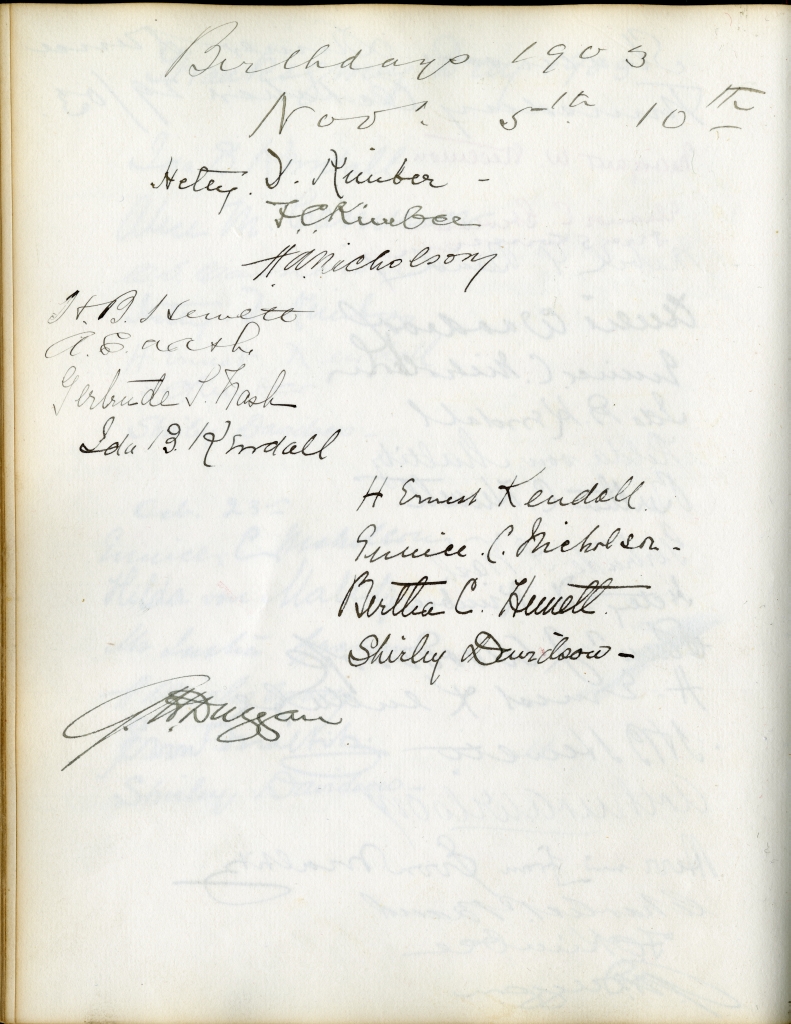 Birthdays 1903
Nov. 5th 10th
Hetty D. Kimber -
F.C. Kimber
H.A. Nicholson
H. B. Hewett
A. E. Nash.
Gertrude S. Nash
Ida B. Kendall
H Ernest Kendall.
Eunice. C. Nicholson.
Bertha C. Hewett.
Shirley Davidson -
G.H. Duggan